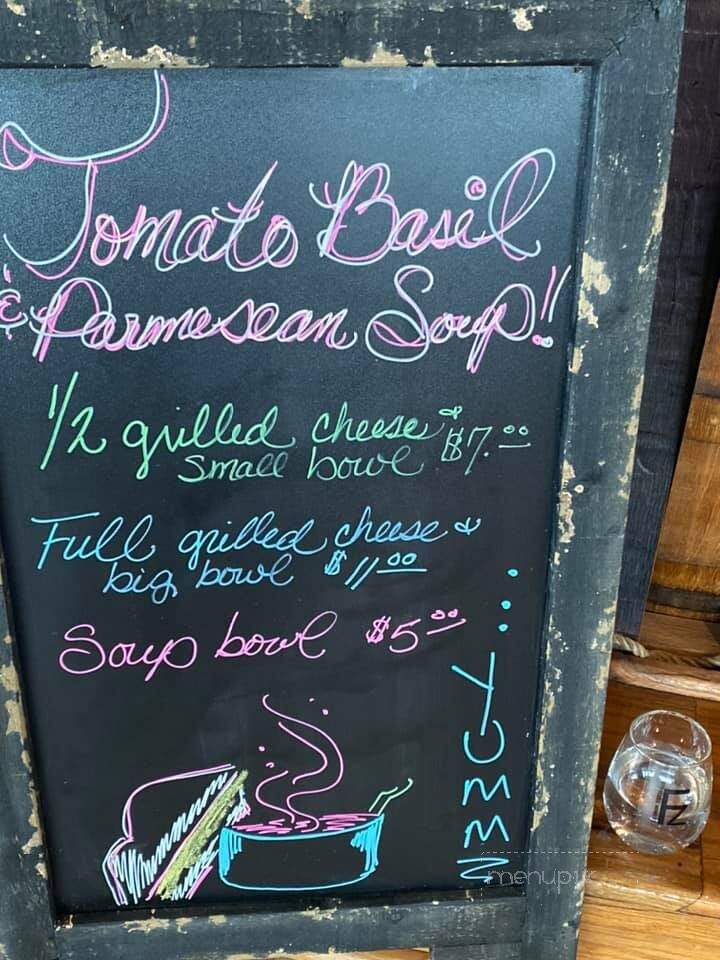 Tomato Basil
& Parmesean Soup!!
1/2 grilled cheese &
small bowl $7.00
Full grilled cheese &
big bowl $11.00
Soup bowl $5.00
FZ
menupix